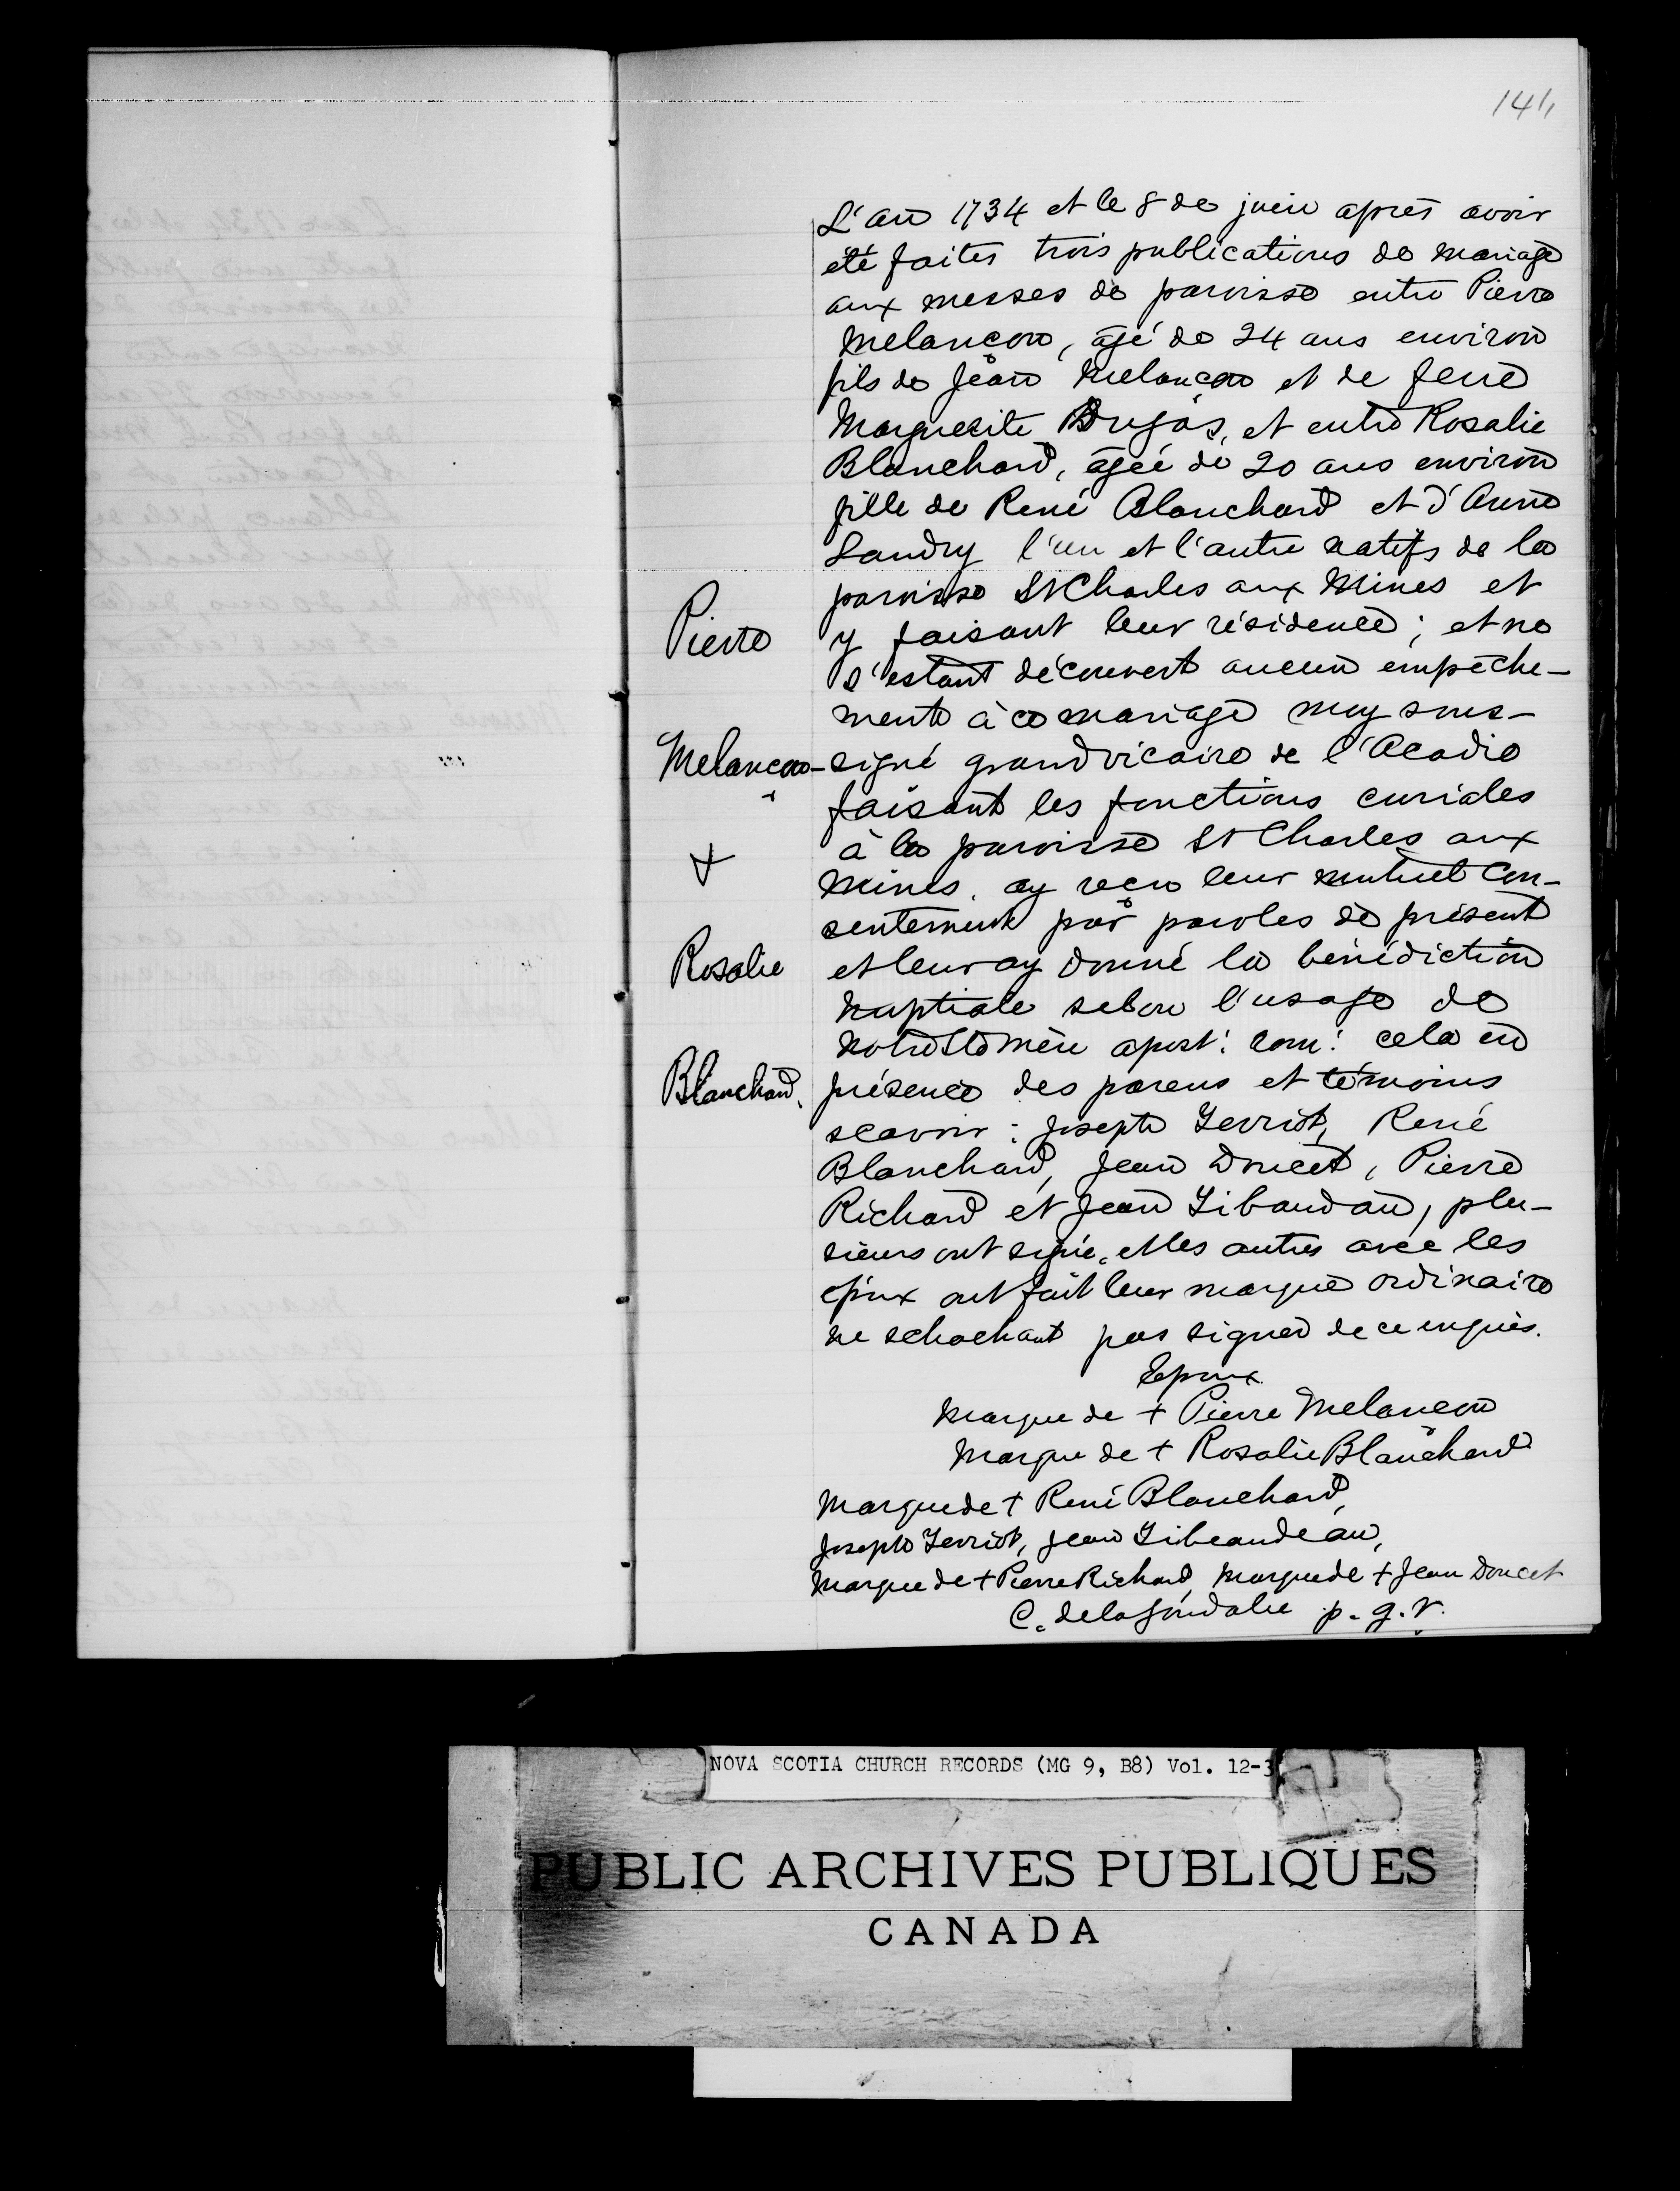 L'an 1734 et le 8 de juin après avoir
été faites trois publications de mariage
aux messes de paroisse entre Pierre
Melançon, âgé de 24 ans environ
fils de Jean Melançon et de feue
Marguerite Dugas, et entre Rosalie
Blanchard, âgée de 20 ans environ
fille de René Blanchard et d'Anne
Landry l'un et l'autre natifs de la
paroisse St Charles aux Mines et
Pierre
y faisant leur résidence; et ne
s'estant découvert aucun empêche-
ment à ce mariage moy sous-
Melançon
signé grand vicaire de l'Acadie
faisant les fonctions curiales
à la paroisse St Charles aux
+
Mines. ay reçu leur mutuel con-
sentement par paroles de présent
Rosalie
et leur ay donné la bénédiction
nuptiale selon l'usage de
notre Ste mère apost: rom: cela en
Blanchard.
présence des parens et témoins
scavoir: Joseph Terriot, René
Blanchard, Jean Doucet, Pierre
Richard et Jean Tibaudau, plu-
sieurs ont signé, et les autres avec les
époux ont fait leur marque ordinaire
ne schachant pas signer de ce enquis.
Epoux
Marque de + Pierre Melancon
Marque de + Rosalie Blanchard
Marque de + René Blanchard,
Joseph Terriot, Jean Tibeaudeau,
Marque de + Pierre Richard, Marque de + Jean Doucet
C. de la Goudalie p. g. v.
NOVA SCOTIA CHURCH RECORDS (MG 9, B8) Vol. 12-3
PUBLIC ARCHIVES PUBLIQUES
CANADA